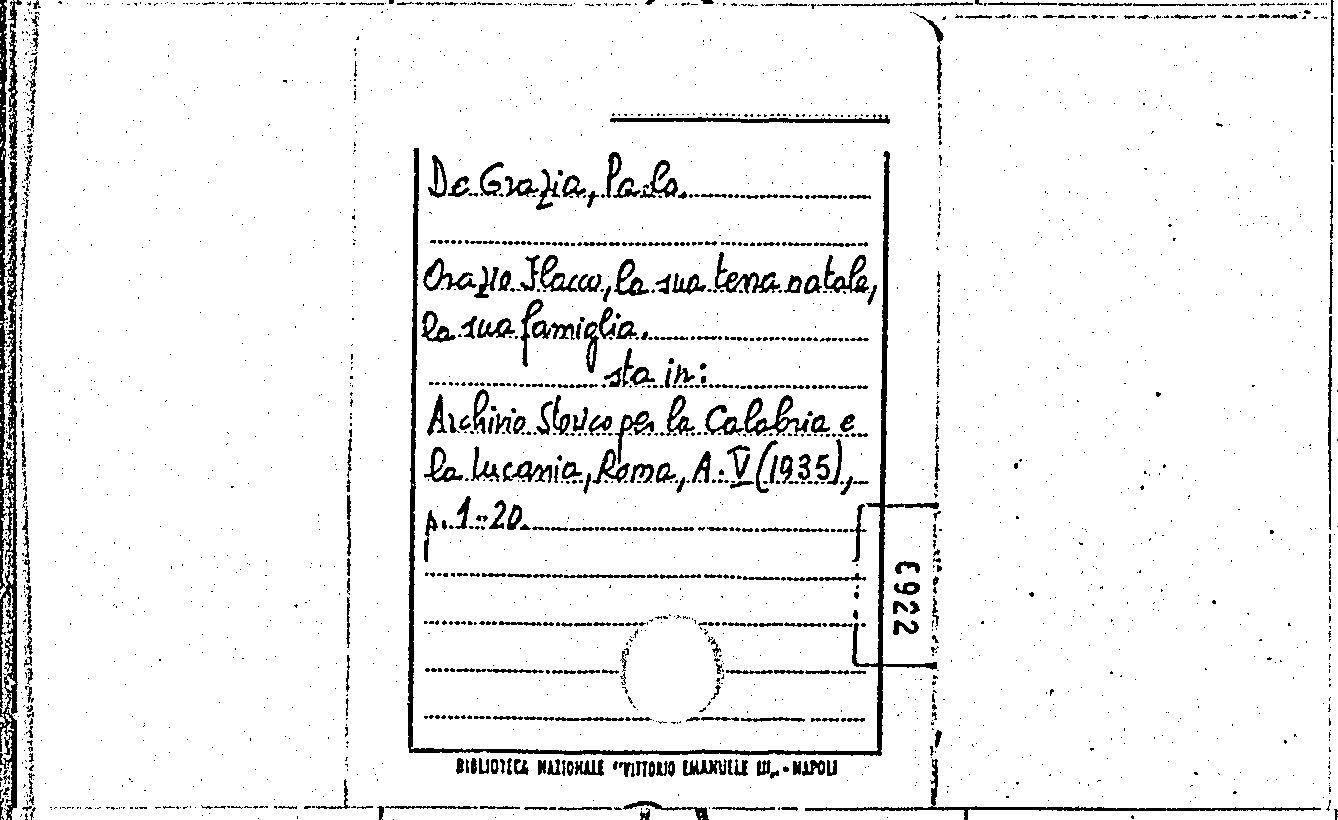 De Grazia, Paolo.
Orazio Flacco, la sua terra natale,
la sua famiglia.
sta in:
Archivio Storico per la Calabria e
la Lucania, Roma, A. V (1935),
p. 1-20.
E922
BIBLIOTECA NAZIONALE "VITTORIO EMANUELE III„ - NAPOLI